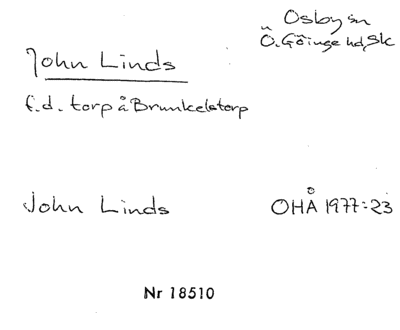 Osby sn
Ö. Göinge hd, Sk
John Linds
f.d. torp å Brunkelstorp
John Linds
OHÅ 1977:23
Nr 18510